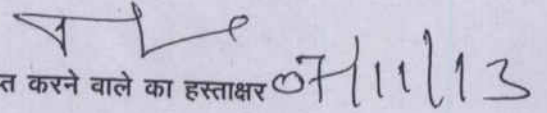 त करने वाले का हस्ताक्षर 07/11/13